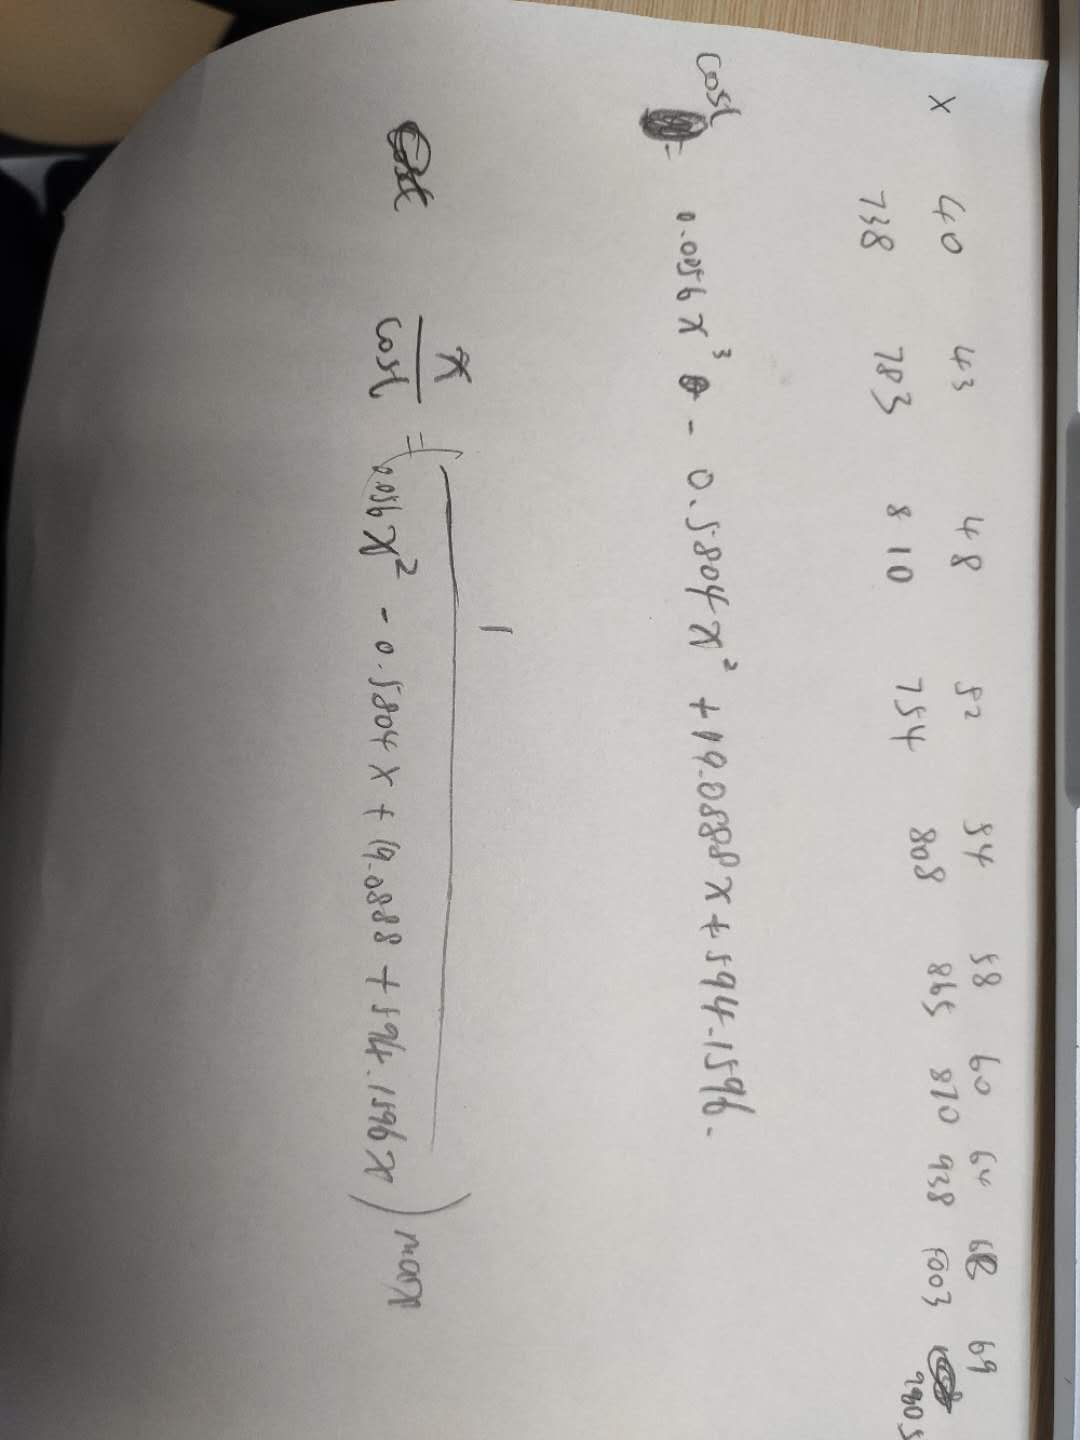 x 40 43 48 52 54 58 60 64 68 69
738 783 810 754 808 865 870 938 1003
cost = 0.0056x³ - 0.5804x² + 19.0888x + 594.1596.
x / cost = ( 1 / 0.0056x² - 0.5804x + 19.0888 + 594.1596x ) max